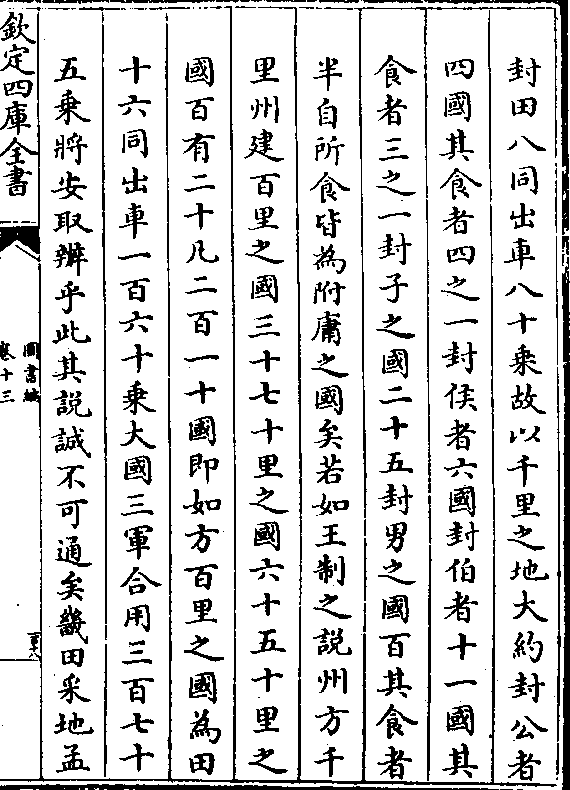 封田八同出車八十乘故以千里之地大約封公者
四國其食者四之一封侯者六國封伯者十一國其
食者三之一封子之國二十五封男之國百其食者
半自所食皆為附庸之國矣若如王制之說州方千
里州建百里之國三十七十里之國六十五十里之
國百有二十凡二百一十國即如方百里之國為田
十六同出車一百六十乘大國三軍合用三百七十
五乘將安取辦乎此其説誠不可通矣畿田采地孟
欽定四庫全書
圖書編
卷十三